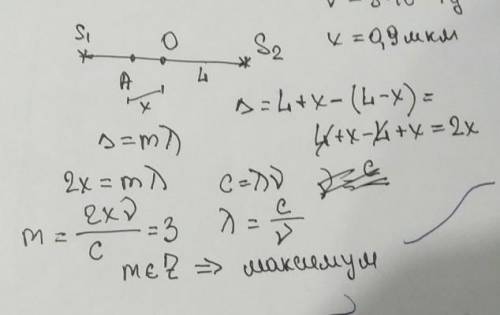 x = 0,9 мкм
S₁ O S₂
A L
x
Δ = L + x - (L - x) =
L + x - L + x = 2x
Δ = mλ
2x = mλ c = λν
m = 2xν/c = 3 λ = c/ν
m ∈ Z ⇒ максимум